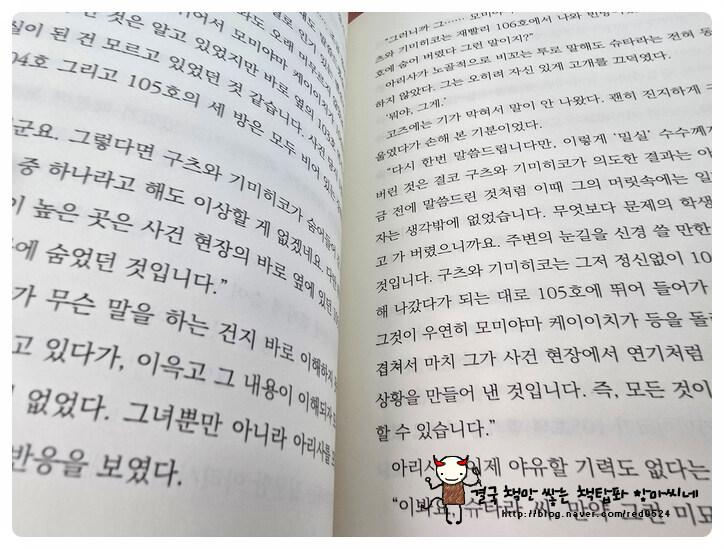 것은 알고 있었지만 바로 옆의
실이 된 건 모르고 있었던 것 같습니다. 사건
04호 그리고 105호의 세 방은 모두 비어 있는
군요. 그렇다면 구츠와 기미히코가
중 하나라고 해도 이상할 게 없겠네요.
이 높은 곳은 사건 현장의 바로 옆에 있던
에 숨었던 것입니다.”
가 무슨 말을 하는 건지 바로 이해하지
고 있다가, 이윽고 그 내용이 이해되자
없었다. 그녀뿐만 아니라 아리사를
반응을 보였다.
“그러니까 그…… 모미야
츠와 기미히코는 재빨리 106호에서 나와
호에 숨어 버렸다 그런 말이지?”
아리사가 노골적으로 비꼬는 투로 말해도 슈타라는 전혀 동
하지 않았다. 그는 오히려 자신 있게 고개를 끄덕였다.
‘뭐야, 그게.’
고즈에는 기가 막혀서 말이 안 나왔다. 괜히 진지하게 구
울였다가 손해 본 기분이었다.
“다시 한번 말씀드립니다만, 이렇게 ‘밀실’ 수수께끼가
버린 것은 결코 구츠와 기미히코가 의도한 결과는 아
금 전에 말씀드린 것처럼 이때 그의 머릿속에는 일
자는 생각밖에 없었습니다. 무엇보다 문제의 학생
고 가 버렸으니까요. 주변의 눈길을 신경 쓸 만한
것입니다. 구츠와 기미히코는 그저 정신없이 10
해 나갔다가 되는 대로 105호에 뛰어 들어가
그것이 우연히 모미야마 케이이치가 등을 돌
겹쳐서 마치 그가 사건 현장에서 연기처럼
상황을 만들어 낸 것입니다. 즉, 모든 것이
할 수 있습니다.”
아리사 이제 야유할 기력도 없다는
“이봐요, 슈타라 씨. 만약 그런 미모
결국 책만 쌓는 책탑파 항마씨네
http://blog.naver.com/red0524